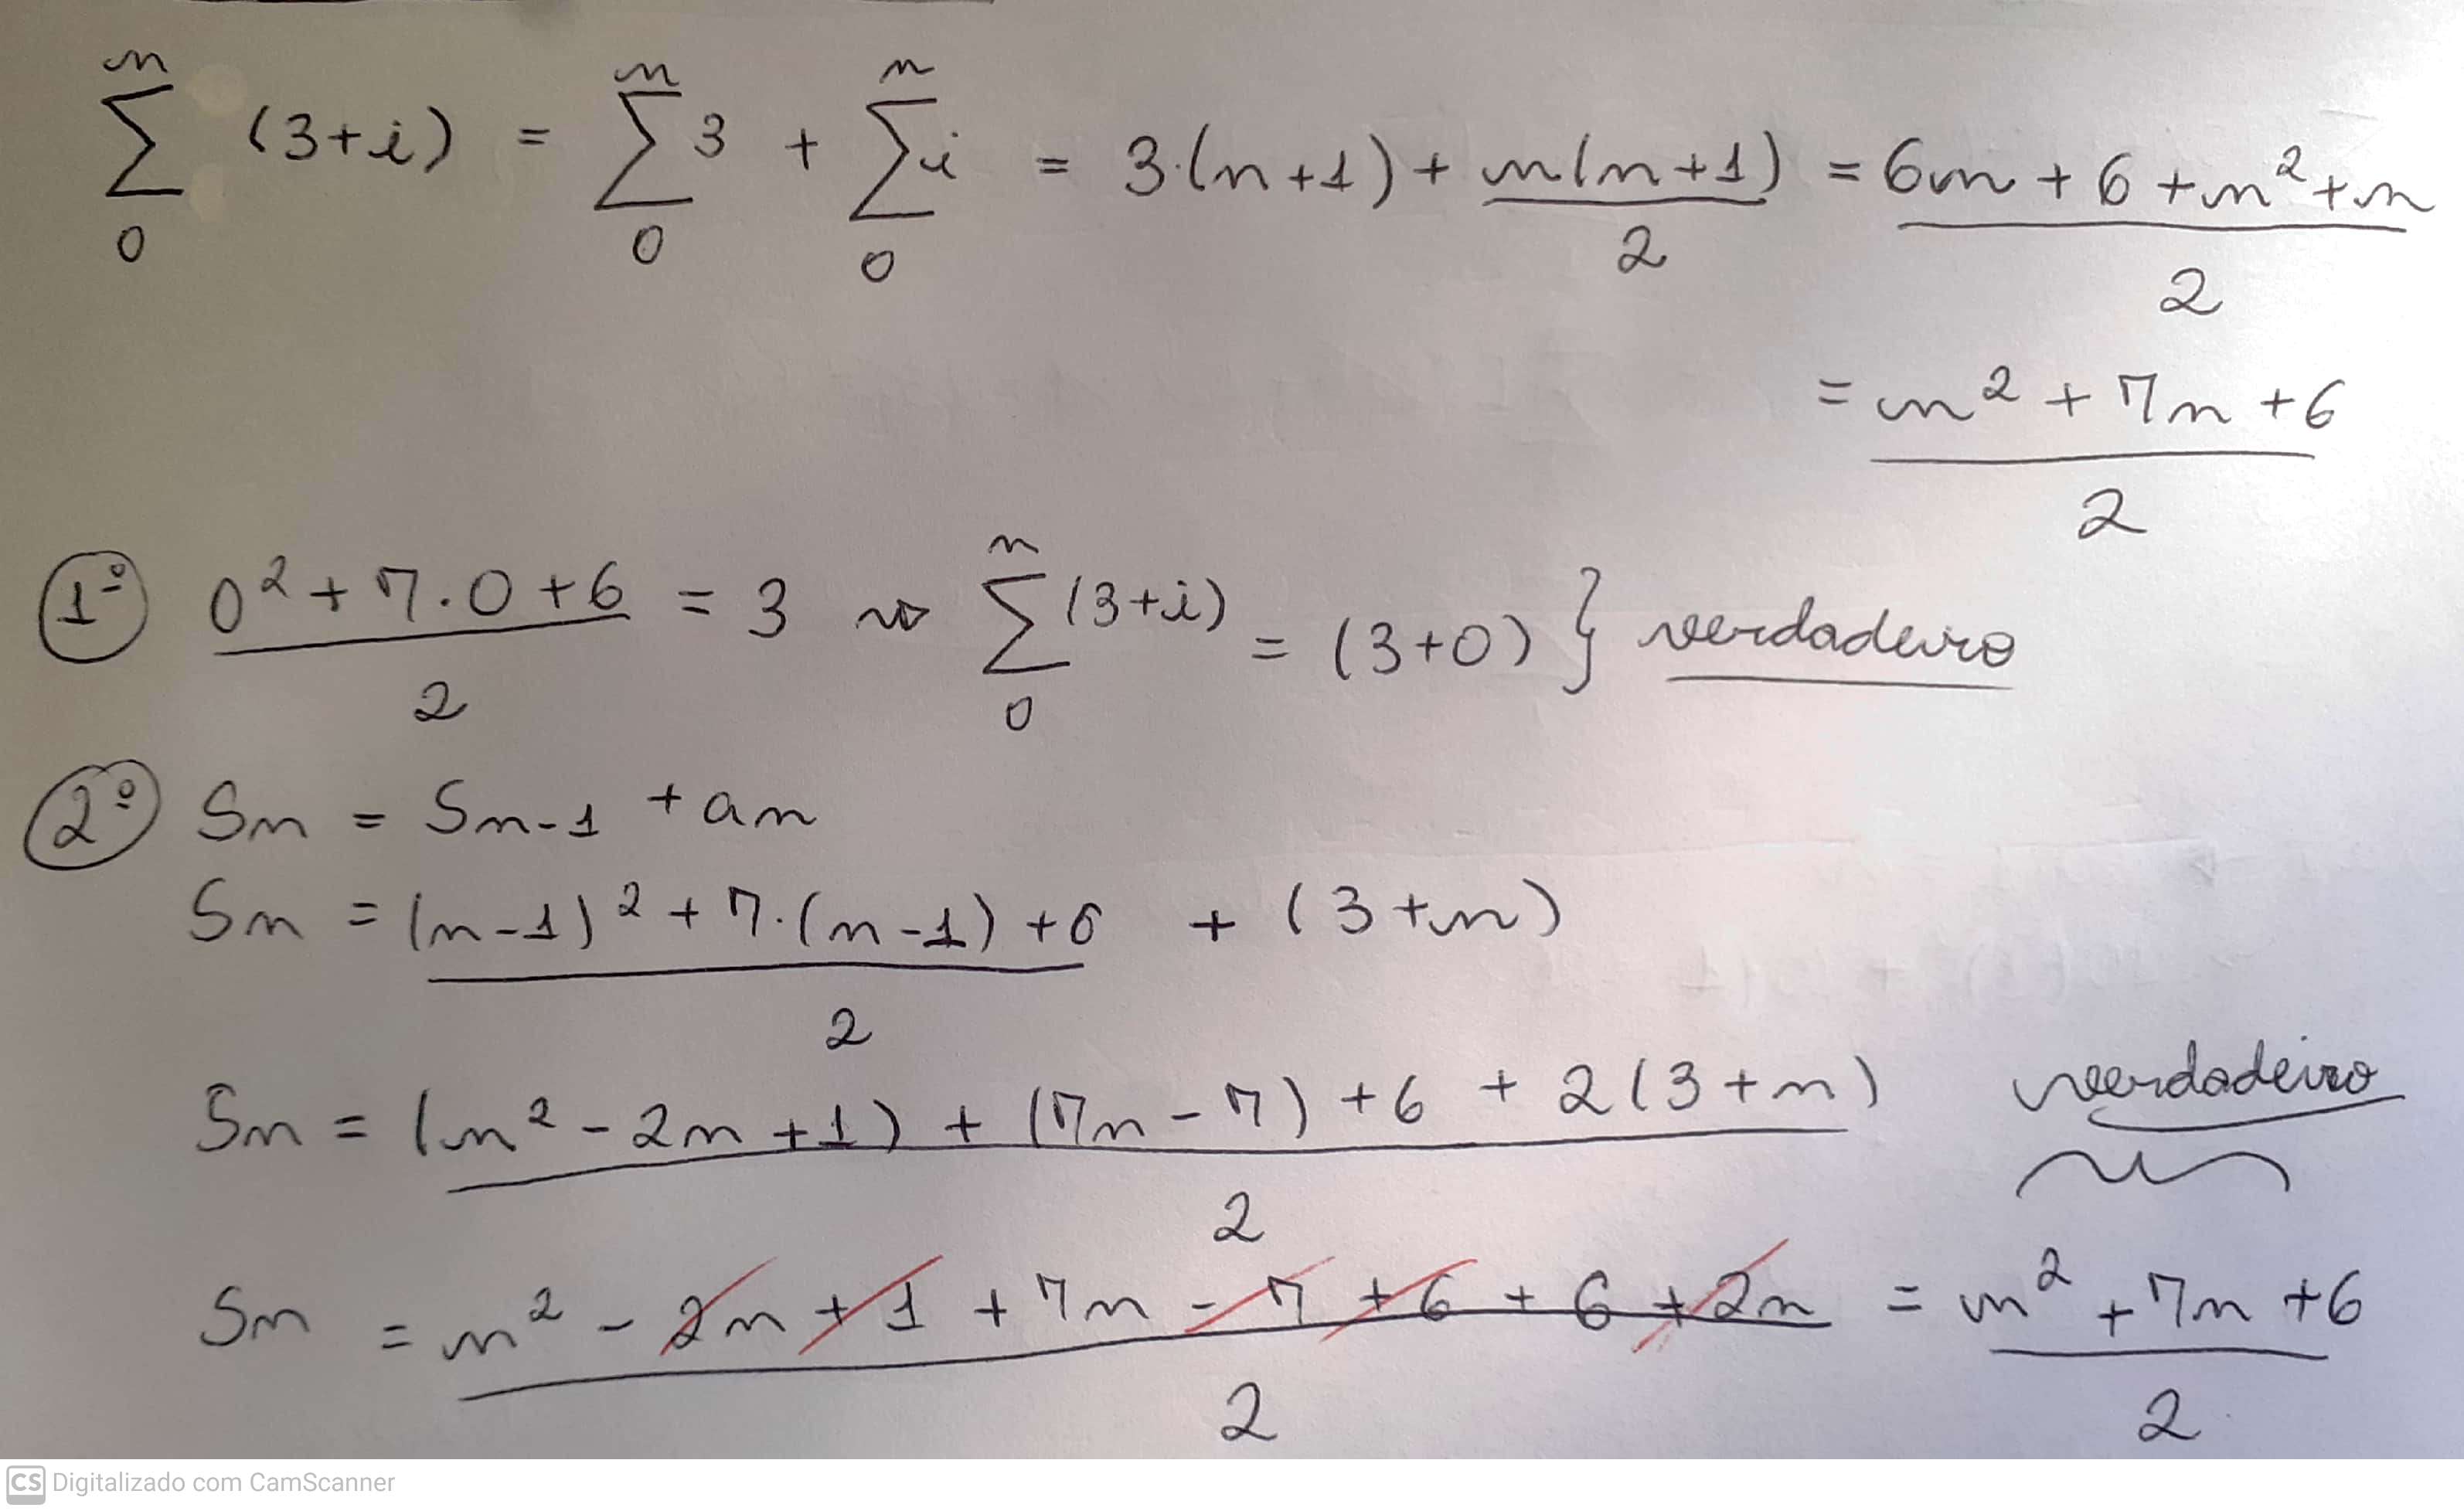 n n n
∑ (3+i) = ∑ 3 + ∑ i = 3·(n+1) + n(n+1) / 2 = 6n + 6 + n² + n / 2
0 0 0
= n² + 7n + 6 / 2
1º 0² + 7·0 + 6 / 2 = 3 ⇝ n ∑ 0 (3+i) = (3+0) } verdadeiro
2º Sn = Sn-1 + an
Sn = (n-1)² + 7·(n-1) + 6 / 2 + (3+n)
Sn = (n² - 2n + 1) + (7n - 7) + 6 + 2(3+n) / 2 verdadeiro
Sn = n² - 2n + 1 + 7n - 7 + 6 + 6 + 2n / 2 = n² + 7n + 6 / 2
CS Digitalizado com CamScanner